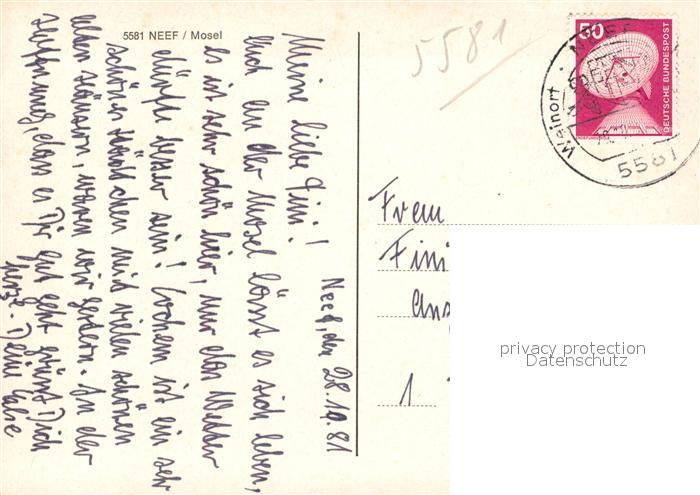 5581 NEEF / Mosel
5581
50
DEUTSCHE BUNDESPOST
Weinort · NEEF
5581
Neef, den 28.10.81
Meine liebe Fini!
Auch an der Mosel lässt es sich leben,
es ist sehr schön hier, nur das Wetter
dürfte besser sein! Cochem ist ein sehr
schönes Städtchen mit vielen schönen
alten Häusern, waren wir gestern. In der
Hoffnung, dass es Dir gut geht grüsst Dich
herzl. Deine
Frau
Fini
Ans
1
privacy protection
Datenschutz